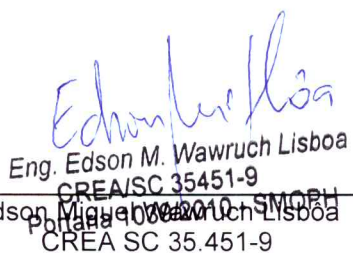 Eng. Edson M. Wawruch Lisboa
CREA/SC 35451-9
Portaria 1039/2010 - SMOPH
dson Miguel Wawruch Lisbôa
CREA SC 35.451-9